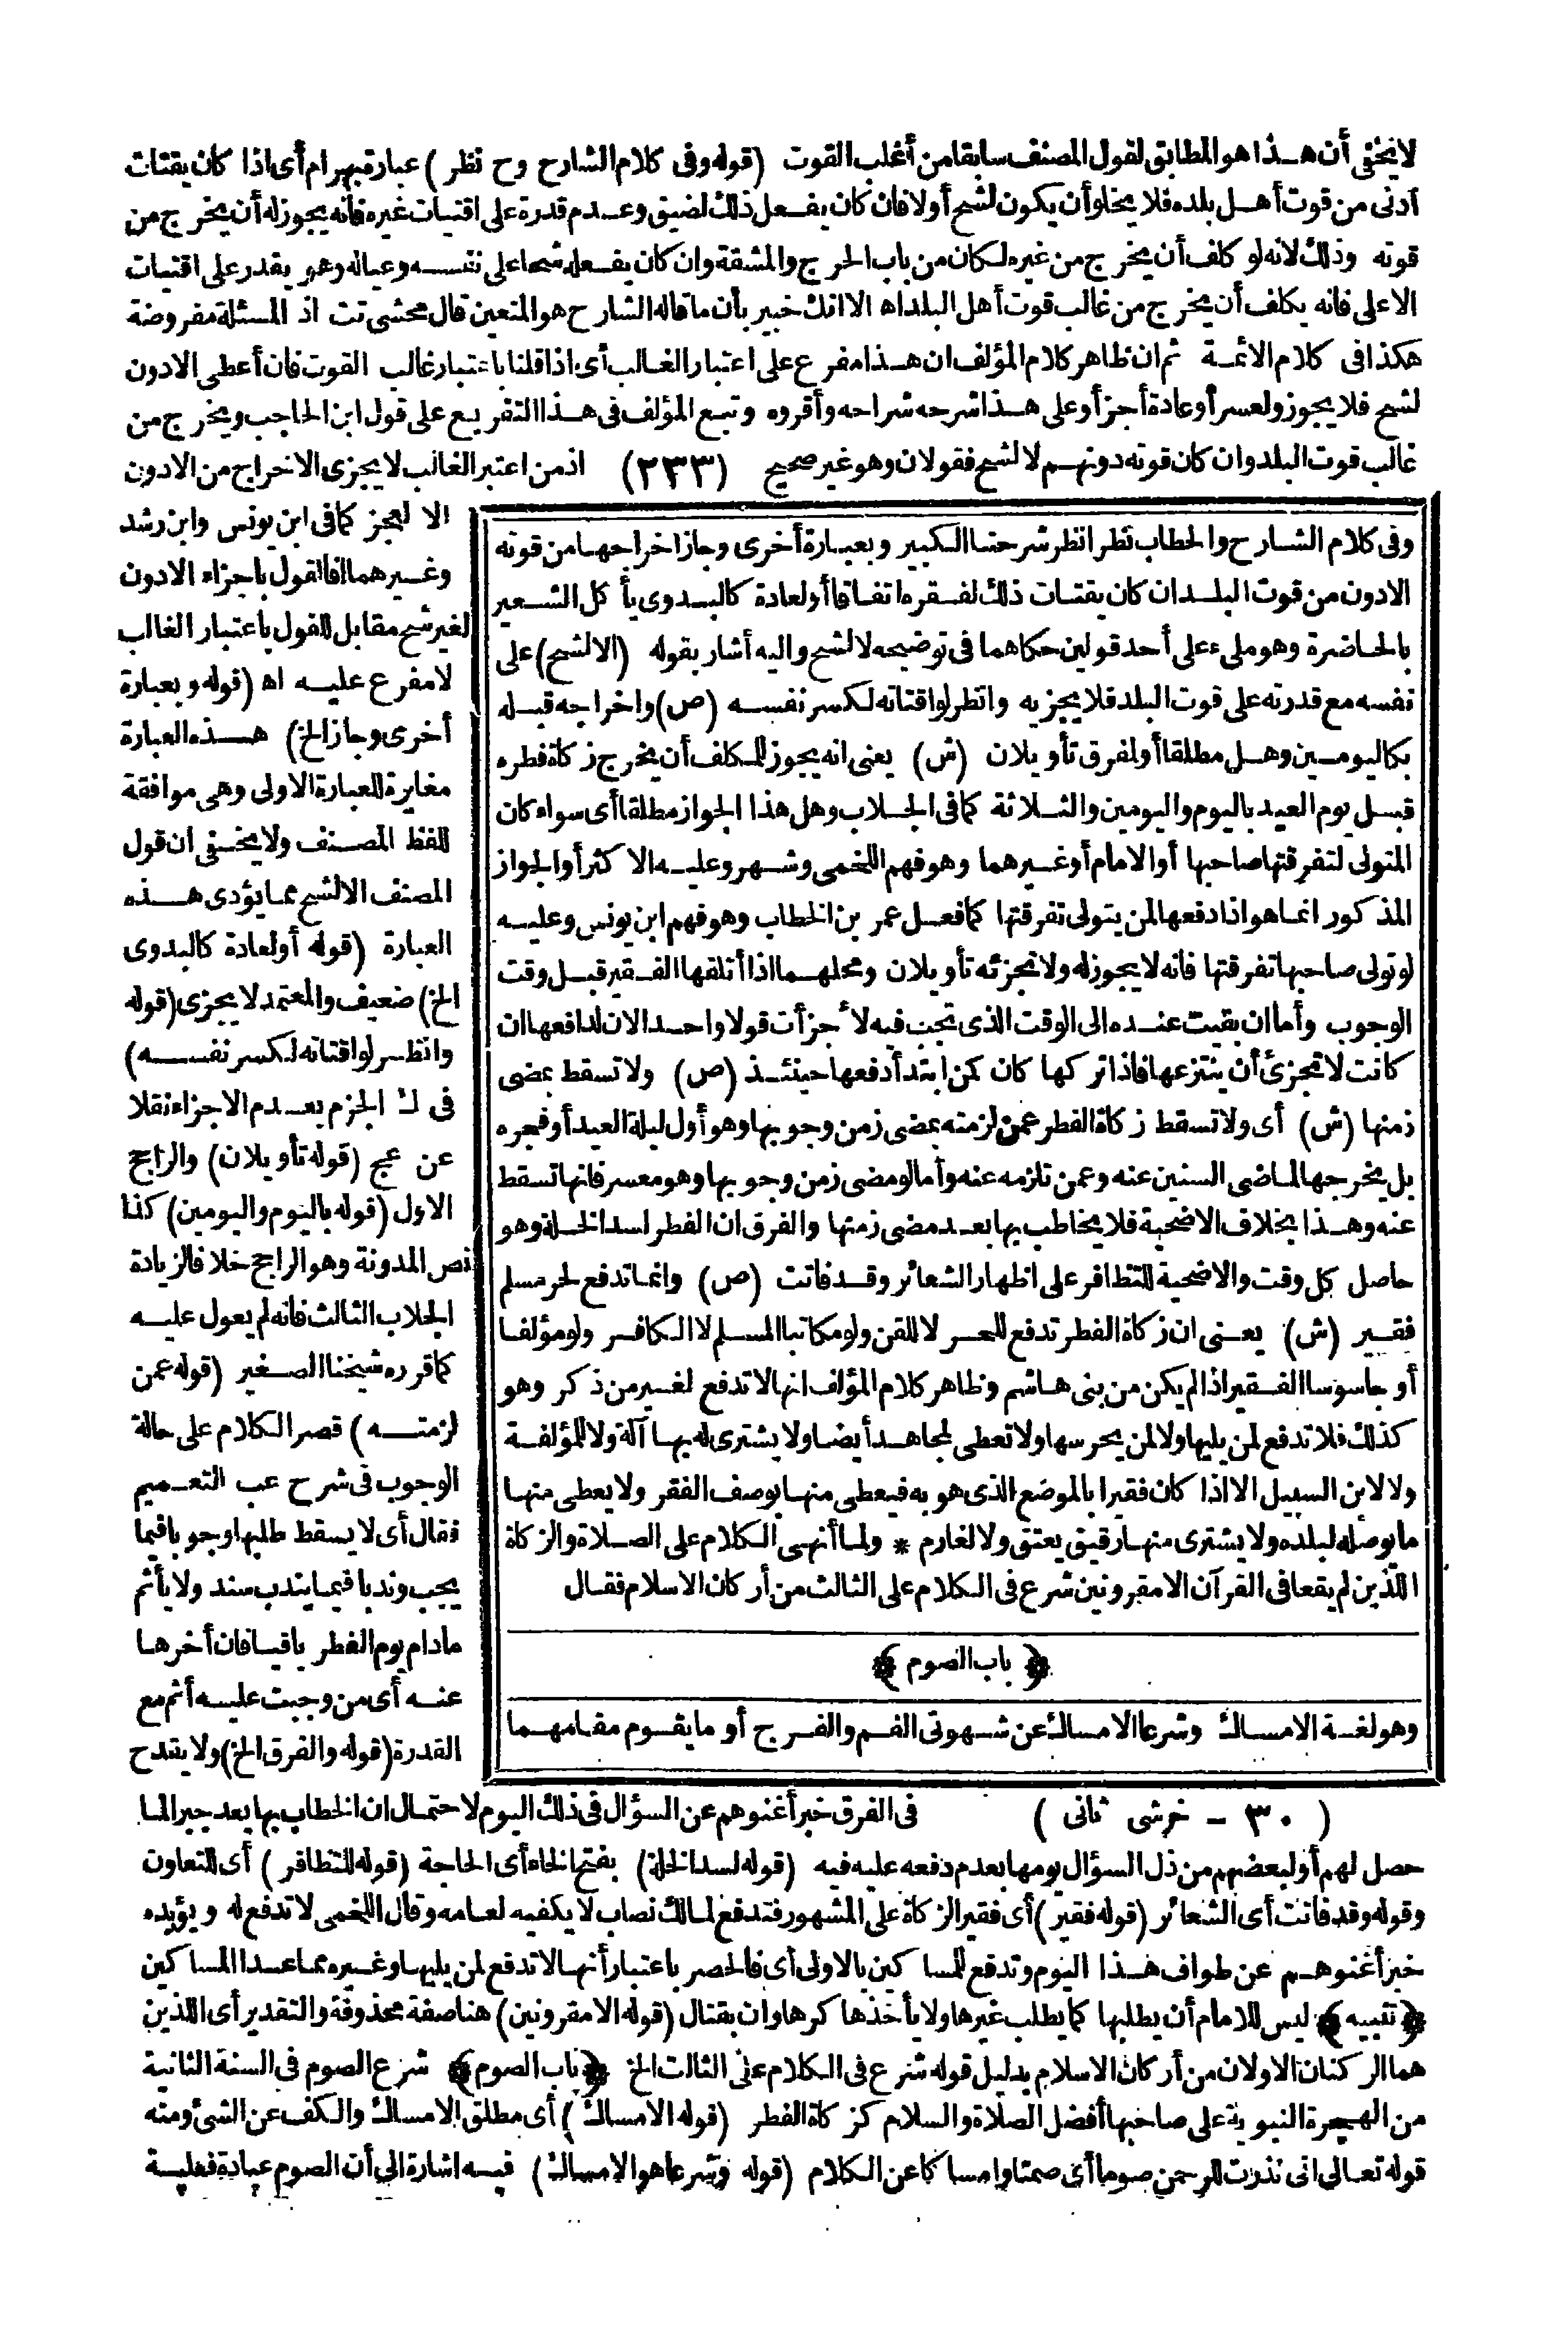 لا يخفى أن هذا هو المطابق لقول المصنف سابقا من أغلب القوت (قوله وفى كلام الشارح وح نظر) عبارة بهرام أى اذا كان يقتات
أدنى من قوت أهل بلده فلا يخلو أن يكون لشح أولا فان كان يفعل ذلك لضيق وعدم قدرة على اقتيات غيره فانه يجوز له أن يخرج من
قوته وذلك لانه لو كلف أن يخرج من غيره لكان من باب الحرج والمشقة وان كان يفعله شحا على نفسه وعياله وهو يقدر على اقتيات
الاعلى فانه يكلف أن يخرج من غالب قوت أهل البلد اه الا انك خبير بأن ما قاله الشارح هو المتعين قال محشى تت اذ المسئلة مفروضة
هكذا فى كلام الائمة ثم ان ظاهر كلام المؤلف ان هذا مفرع على اعتبار الغالب أى اذا قلنا باعتبار غالب القوت فان أعطى الادون
لشح فلا يجوز ولعسر أو عادة أجزأ وعلى هذا شرحه شراحه وأقروه وتبع المؤلف فى هذا التفريع على قول ابن الحاجب ويخرج من
غالب قوت البلد وان كان قوته دونهم لا لشح فقولان وهو غير صحيح (٢٣٣) اذ من اعتبر الغالب لا يجزى الاخراج من الادون
الا لعجز كما فى ابن يونس وابن رشد
وغيرهما اذا القول باجزاء الادون
لغير شح مقابل للقول باعتبار الغالب
لا مفرع عليه اه (قوله وبعبارة
أخرى وجاز الخ) هذه العبارة
مغايرة للعبارة الاولى وهى موافقة
للفظ المصنف ولا يخفى ان قول
المصنف الا لشح مما يؤدى هذه
العبارة (قوله أو لعادة كالبدوى
الخ) ضعيف والمعتمد لا يجزى (قوله
وانظر لو اقتاته لكسر نفسه)
فى ك الجزم بعدم الاجزاء نقلا
عن عج (قوله تأويلان) والراجح
الاول (قوله باليوم واليومين) كذا
نص المدونة وهو الراجح خلافا لزيادة
الجلاب الثالث فانه لم يعول عليه
كما قرره شيخنا الصغير (قوله عمن
لزمته) قصر الكلام على حالة
الوجوب فى شرح عب التعميم
فقال أى لا يسقط طلبها وجوبا فيما
يجب وندبا فيما يندب سند ولا يأثم
مادام يوم الفطر باقيا فان أخرها
عنه أى من وجبت عليه أثم مع
القدرة (قوله والفرق الخ) ولا يقدح
وفى كلام الشارح والحطاب نظر انظر شرحنا الكبير وبعبارة أخرى وجاز اخراجها من قوته
الادون من قوت البلد ان كان يقتات ذلك لفقره اتفاقا أو لعادة كالبدوى يأكل الشعير
بالحاضرة وهو ملىء على أحد قولين حكاهما فى توضيحه لا لشح واليه أشار بقوله (الا لشح) على
نفسه مع قدرته على قوت البلد فلا يجزيه وانظر لو اقتاته لكسر نفسه (ص) واخراجه قبله
بكاليومين وهل مطلقا أو لمفرق تأويلان (ش) يعنى انه يجوز للمكلف أن يخرج زكاة فطره
قبل يوم العيد باليوم واليومين والثلاثة كما فى الجلاب وهل هذا الجواز مطلقا أى سواء كان
المتولى لتفرقتها صاحبها أو الامام أو غيرهما وهو فهم اللخمى وشهر وعليه الاكثر أو الجواز
المذكور انما هو اذا دفعها لمن يتولى تفرقتها كما فعل عمر بن الخطاب وهو فهم ابن يونس وعليه
لو تولى صاحبها تفرقتها فانه لا يجوز له ولا تجزئه تأويلان ومحلهما اذا أتلفها الفقير قبل وقت
الوجوب وأما ان بقيت عنده الى الوقت الذى تجب فيه لأجزأت قولا واحدا لان لدافعها ان
كانت لا تجزئ أن ينتزعها فاذا تركها كان كمن ابتدأ دفعها حينئذ (ص) ولا تسقط بمضى
زمنها (ش) أى ولا تسقط زكاة الفطر عمن لزمته بمضى زمن وجوبها وهو أول ليلة العيد أو فجره
بل يخرجها لماضى السنين عنه وعمن تلزمه عنه وأما لو مضى زمن وجوبها وهو معسر فانها تسقط
عنه وهذا بخلاف الاضحية فلا يخاطب بها بعد مضى زمنها والفرق ان الفطر لسد الخلة وهو
حاصل كل وقت والاضحية للتظافر على اظهار الشعائر وقد فاتت (ص) وانما تدفع لحر مسلم
فقير (ش) يعنى ان زكاة الفطر تدفع للحر لا للقن ولو مكاتبا المسلم لا الكافر ولو مؤلفا
أو جاسوسا الفقير اذا لم يكن من بنى هاشم وظاهر كلام المؤلف انها لا تدفع لغير من ذكر وهو
كذلك فلا تدفع لمن يليها ولا لمن يحرسها ولا تعطى لمجاهد أيضا ولا يشترى له بها آلة ولا للمؤلفة
ولا لابن السبيل الا اذا كان فقيرا بالموضع الذى هو به فيعطى منها بوصف الفقر ولا يعطى منها
ما يوصله لبلده ولا يشترى منها رقيق يعتق ولا لغارم * ولما أنهى الكلام على الصلاة والزكاة
اللذين لم يقعا فى القرآن الا مقرونين شرع فى الكلام على الثالث من أركان الاسلام فقال
﴿ باب الصوم ﴾
وهو لغة الامساك وشرعا الامساك عن شهوتى الفم والفرج أو ما يقوم مقامهما
(٣٠ - خرشى ثانى) فى الفرق خبر أغنوهم عن السؤال فى ذلك اليوم لاحتمال ان الخطاب بها بعد جبر لما
حصل لهم أو لبعضهم من ذل السؤال يومها بعدم دفعه عليه فيه (قوله لسد الخلة) بفتح الخاء أى الحاجة (قوله للتظافر) أى للتعاون
وقوله وقد فاتت أى الشعائر (قوله فقير) أى فقير الزكاة على المشهور فتدفع لمالك نصاب لا يكفيه لعامه وقال اللخمى لا تدفع له ويؤيده
خبر أغنوهم عن طواف هذا اليوم وتدفع للمساكين بالاولى أى فالحصر باعتبار أنها لا تدفع لمن يليها وغيره مما عدا المساكين
﴿تنبيه﴾ ليس للامام أن يطلبها كما يطلب غيرها ولا يأخذها كرها وان بقتال (قوله الا مقرونين) هنا صفة محذوفة والتقدير أى اللذين
هما الركنان الاولان من أركان الاسلام بدليل قوله شرع فى الكلام على الثالث الخ ﴿باب الصوم﴾ شرع الصوم فى السنة الثانية
من الهجرة النبوية على صاحبها أفضل الصلاة والسلام كزكاة الفطر (قوله الامساك) أى مطلق الامساك والكف عن الشئ ومنه
قوله تعالى انى نذرت للرحمن صوما أى صمتا وامساكا عن الكلام (قوله وشرعا هو الامساك) فيه اشارة الى أن الصوم عبادة فعلية